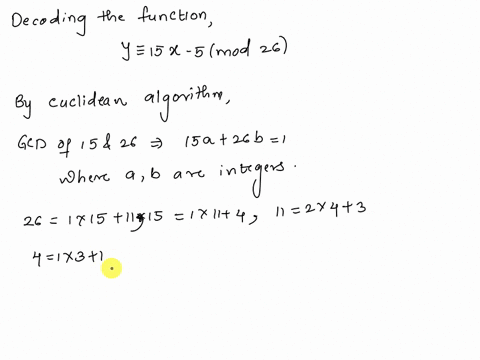 Decoding the function,
y ≡ 15x - 5 (mod 26)
By euclidean algorithm,
GCD of 15 & 26 ⇒ 15a + 26b = 1
where a, b are integers.
26 = 1 × 15 + 11, 15 = 1 × 11 + 4, 11 = 2 × 4 + 3
4 = 1 × 3 + 1